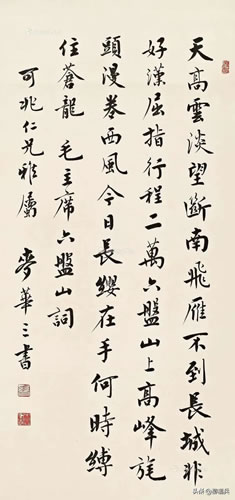 天高雲淡望斷南飛雁不到長城非
好漢屈指行程二萬六盤山上高峰旄
頭漫卷西風今日長纓在手何時縛
住蒼龍 毛主席六盤山詞
可兆仁兄雅屬 麥華三書
头条